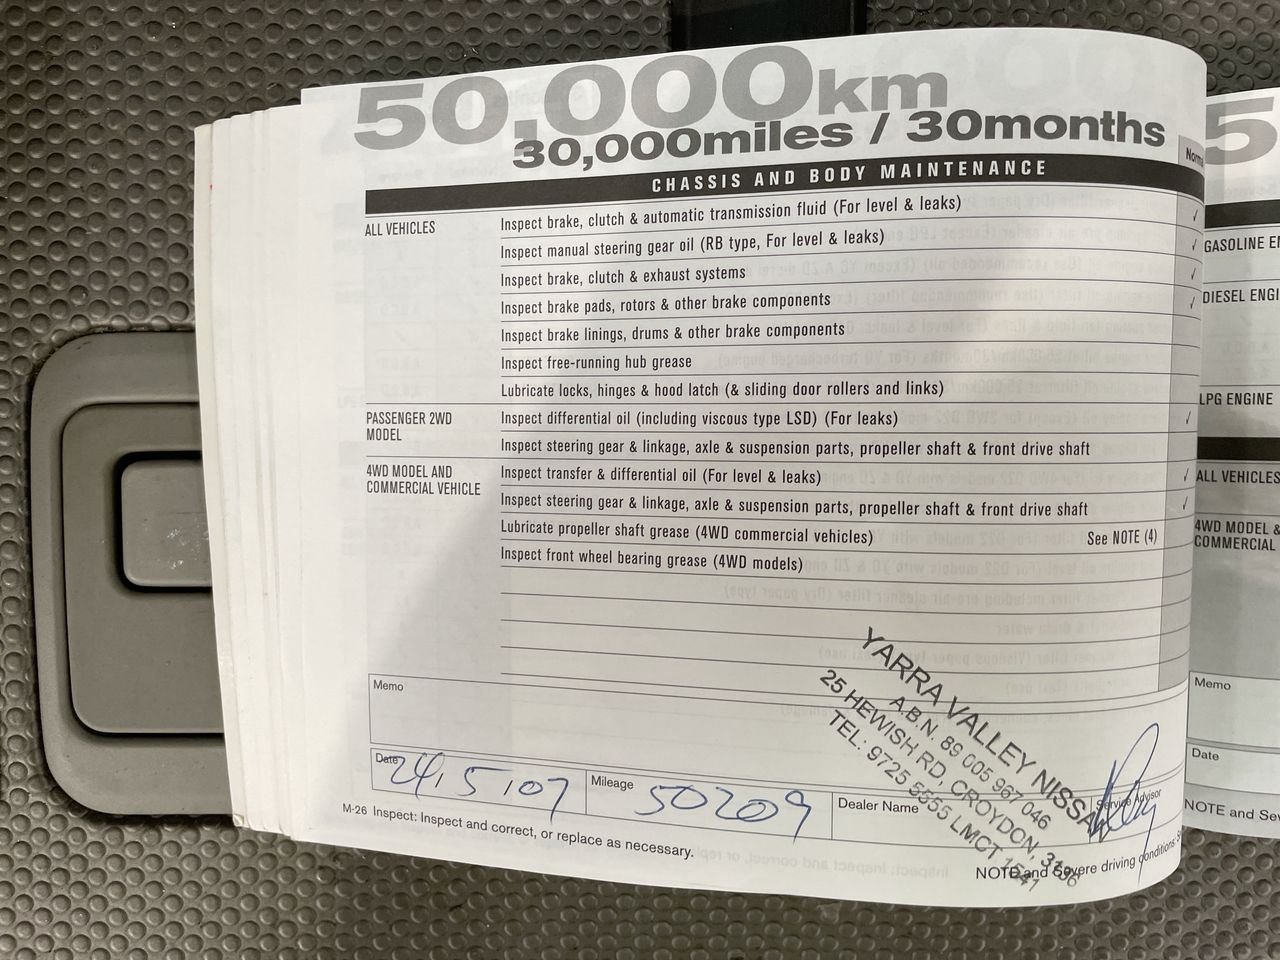 50,000km
30,000miles / 30months
CHASSIS AND BODY MAINTENANCE
ALL VEHICLES
Inspect brake, clutch & automatic transmission fluid (For level & leaks) ✓
Inspect manual steering gear oil (RB type, For level & leaks) ✓
Inspect brake, clutch & exhaust systems ✓
Inspect brake pads, rotors & other brake components ✓
Inspect brake linings, drums & other brake components
Inspect free-running hub grease
Lubricate locks, hinges & hood latch (& sliding door rollers and links)
PASSENGER 2WD
MODEL
Inspect differential oil (including viscous type LSD) (For leaks) ✓
Inspect steering gear & linkage, axle & suspension parts, propeller shaft & front drive shaft
4WD MODEL AND
COMMERCIAL VEHICLE
Inspect transfer & differential oil (For level & leaks) ✓
Inspect steering gear & linkage, axle & suspension parts, propeller shaft & front drive shaft ✓
Lubricate propeller shaft grease (4WD commercial vehicles) See NOTE (4)
Inspect front wheel bearing grease (4WD models)
Memo
Date 24,5,07
Mileage 50209
Dealer Name
Service Advisor
YARRA VALLEY NISSAN
A.B.N. 89 005 967 046
25 HEWISH RD, CROYDON, 3136
TEL: 9725 5555 LMCT 1541
M-26 Inspect: Inspect and correct, or replace as necessary.
NOTE and Severe driving conditions:
5
GASOLINE
DIESEL
LPG ENGINE
ALL VEHICLES
4WD MODEL &
COMMERCIAL
Memo
Date
NOTE and